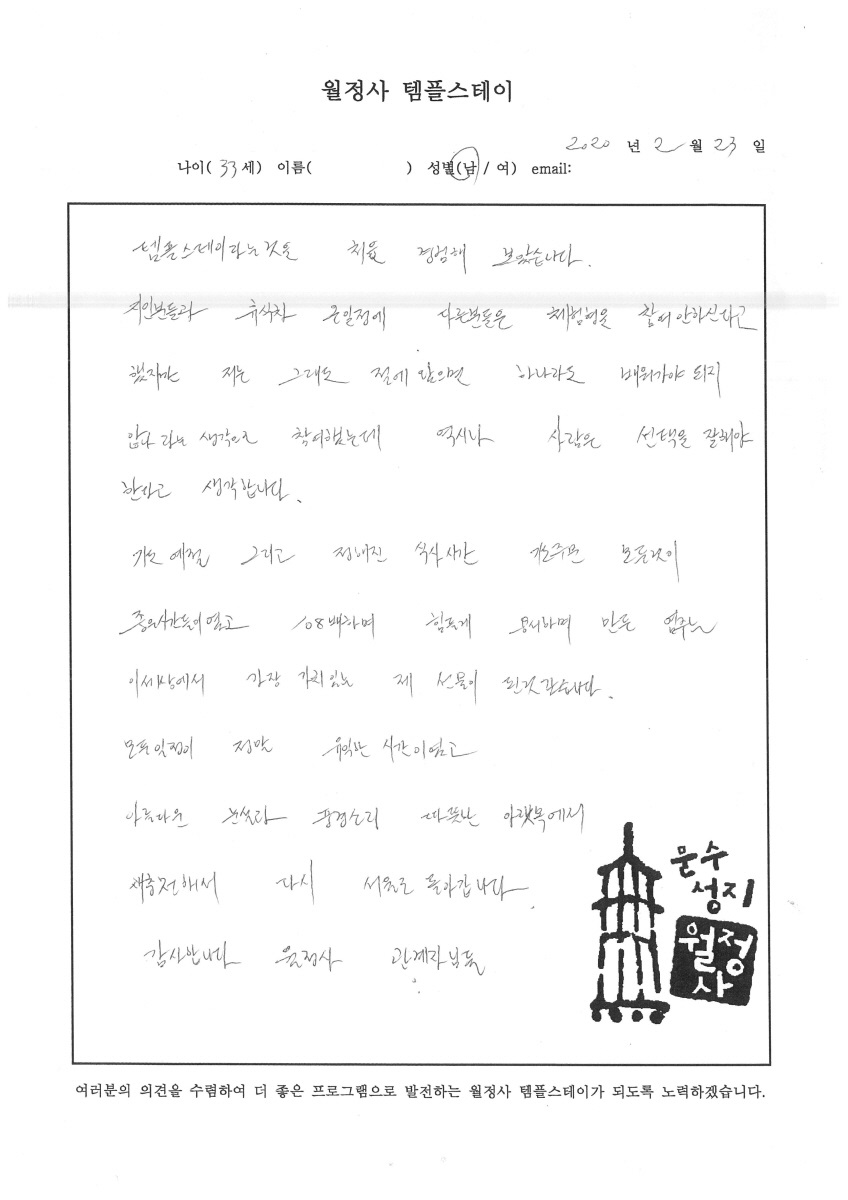 월정사 템플스테이
2020 년 2 월 23 일
나이( 33 세) 이름( ) 성별(남 / 여) email:
템플스테이라는것을 처음 경험해 보았습니다.
지인분들과 휴식차 온일정에 다른분들은 체험형을 참여안하신다고
했지만 저는 그래도 절에 왔으면 하나라도 배워가야 되지
않나 라는 생각으로 참여했는데 역시나 사람은 선택을 잘해야
한다고 생각합니다.
기본 예절 그리고 정해진 식사시간 모든것이
좋은시간들이였고 108배하며 힘들게 만든 염주는
이세상에서 가장 가치있는 제 선물이 된것같습니다.
모든일정이 정말 유익한 시간이였고
아름다운 눈썰라 풍경소리 따뜻난 아랫목에서
재충전해서 다시 서울로 돌아갑니다.
감사합니다 월정사 관계자님들
문수
성지
월정
사
여러분의 의견을 수렴하여 더 좋은 프로그램으로 발전하는 월정사 템플스테이가 되도록 노력하겠습니다.